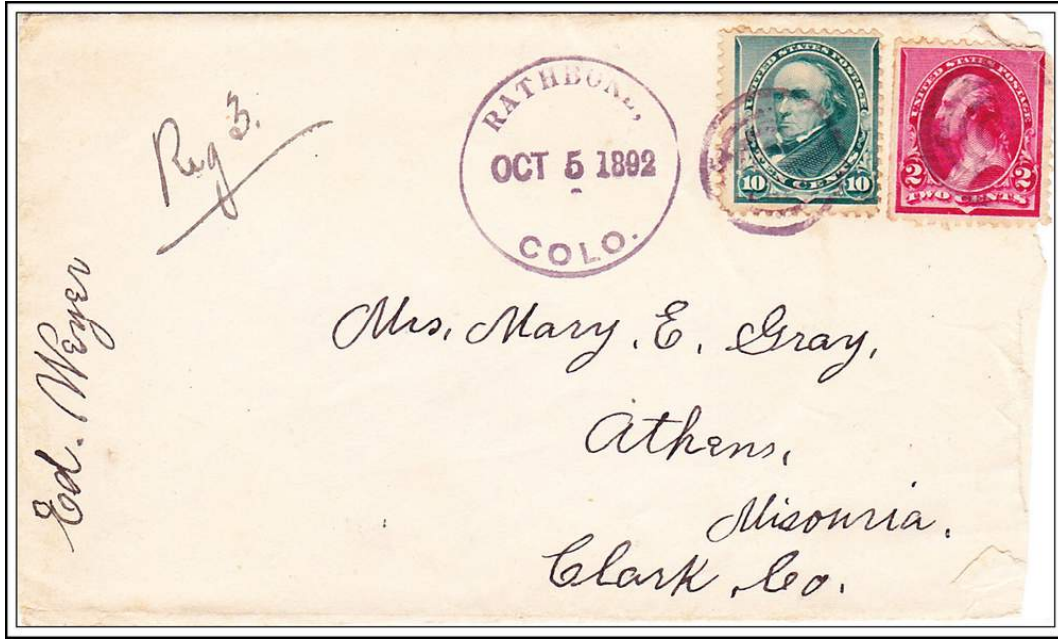 Reg 3.
RATHBONE,
OCT 5 1892
COLO.
UNITED STATES POSTAGE
10 10
TEN CENTS
UNITED STATES POSTAGE
2 2
TWO CENTS
Ed. Weyer
Mrs. Mary. E. Gray,
Athens,
Misouria.
Clark. Co.